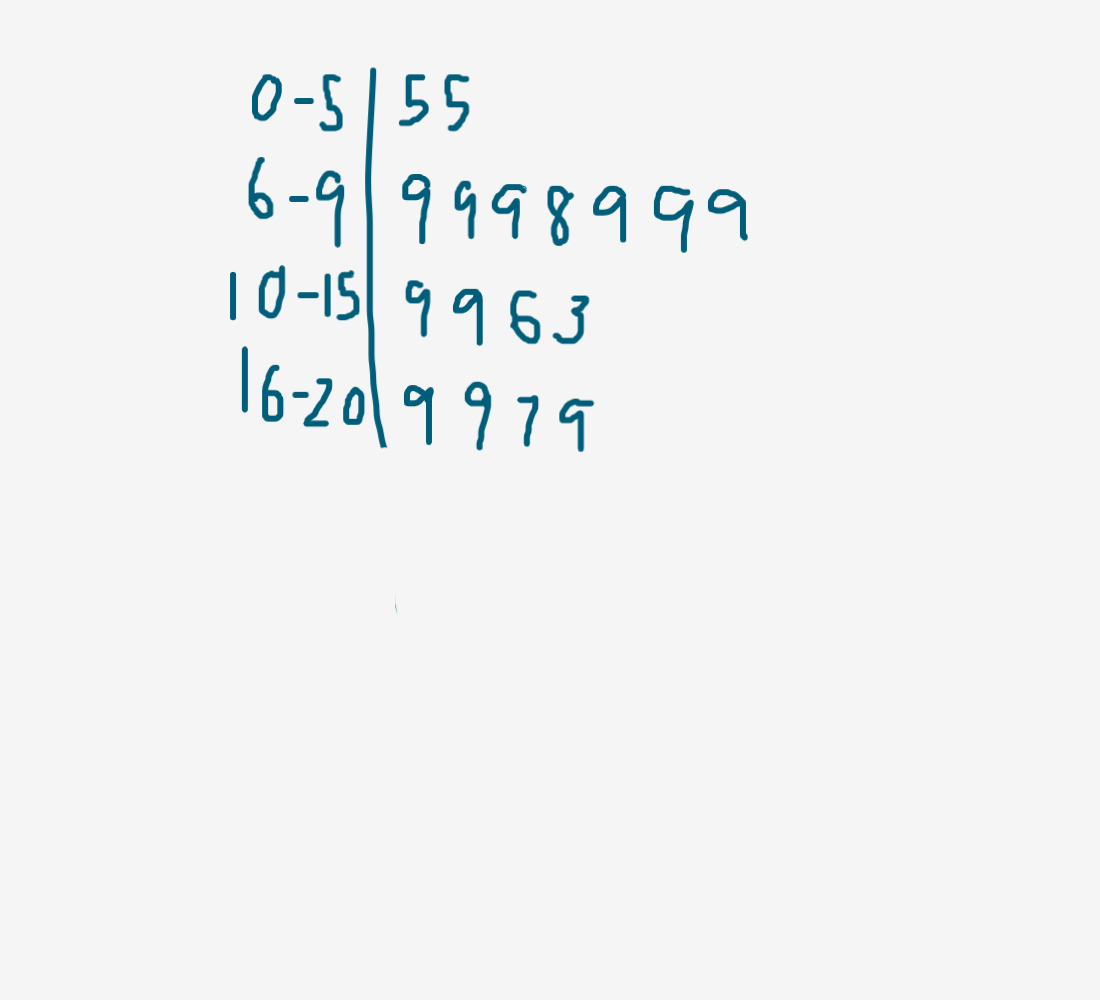 0-5 | 55
6-9 | 9 9 9 8 9 9 9
10-15 | 9 9 6 3
16-20 | 9 9 7 9